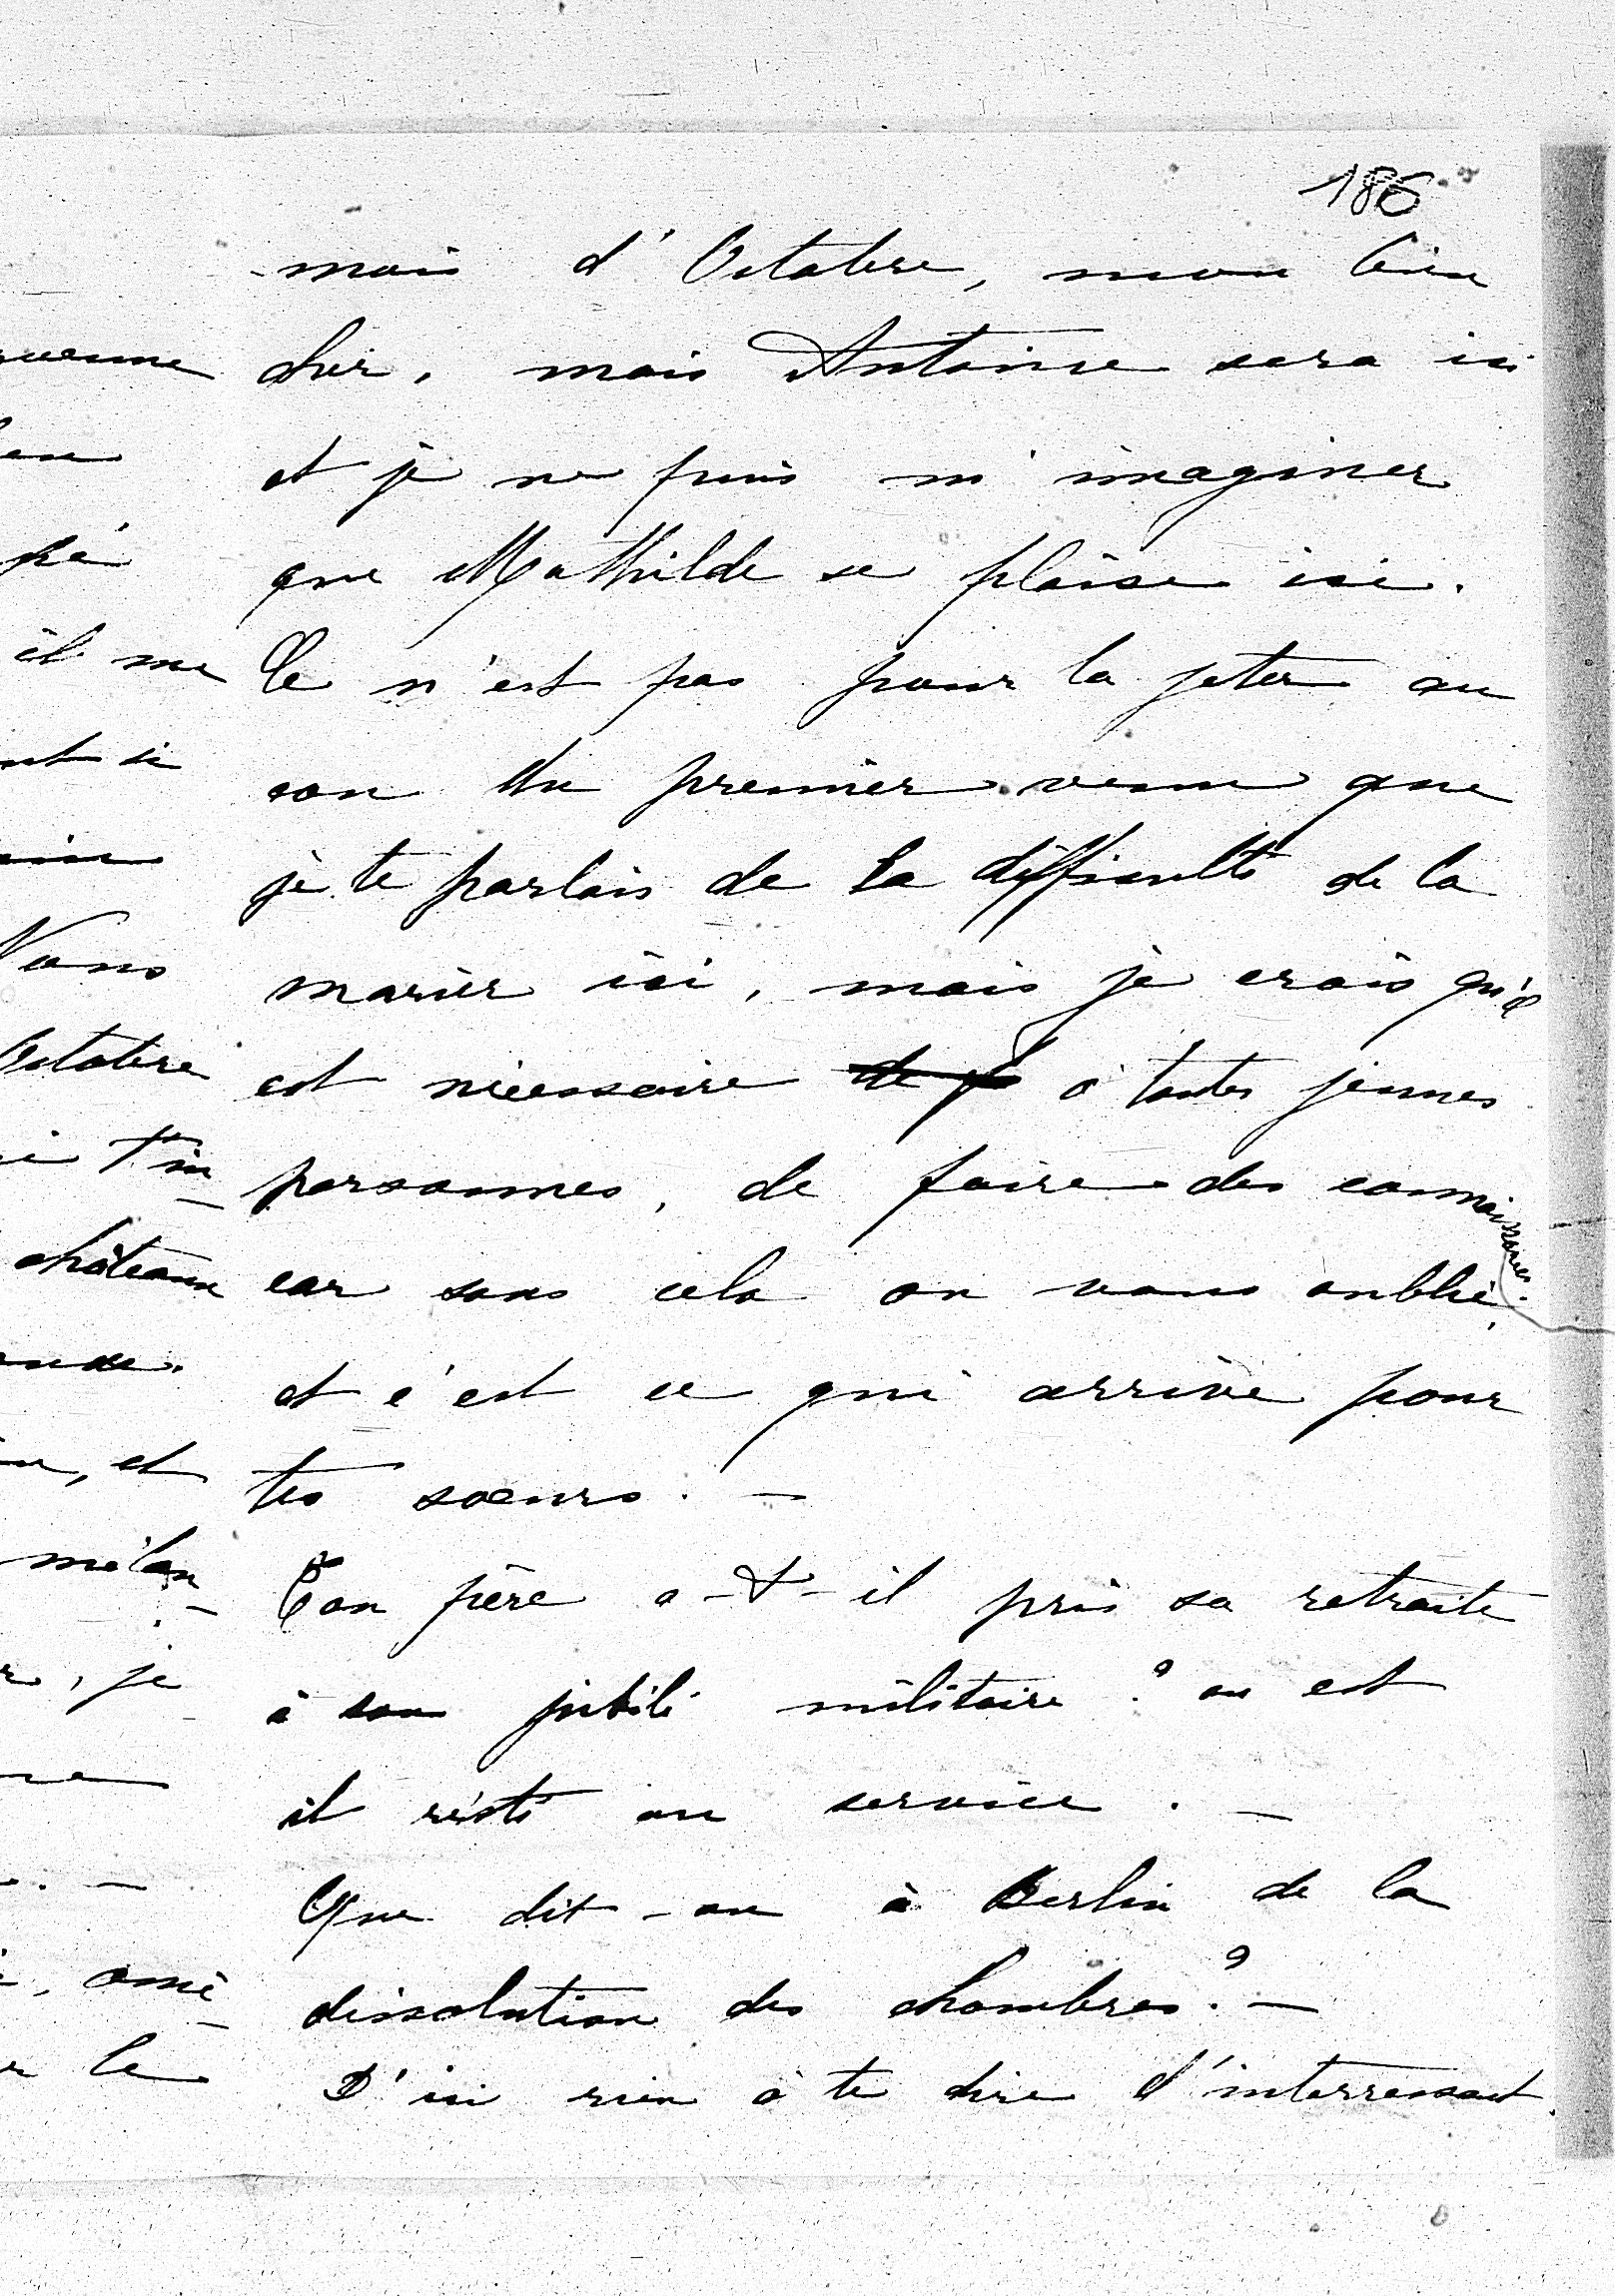 186
mois d'Octobre, mon bien
cher, mais Antoine sera ici
et je ne puis m'imaginer
que Mathilde se plaise ici.
Ce n'est pas pour la jeter au
cou du premier venu que
je te parlais de la difficulté de la
marier ici, mais je crois qu'il
est nécessaire à toutes jeunes
personnes, de faire des connaissances
car sans cela on vous oublie,
et c'est ce qui arrive pour
tes soeurs. —
Ton père a-t-il pris sa retraite
à son jubilé militaire? ou est
il resté au service. —
Que dit-on à Berlin de la
dissolution des chambres? —
D'ici rien à te dire d'interressant.
il me
Vous
Octobre
châteaux
et
mélan
je
le